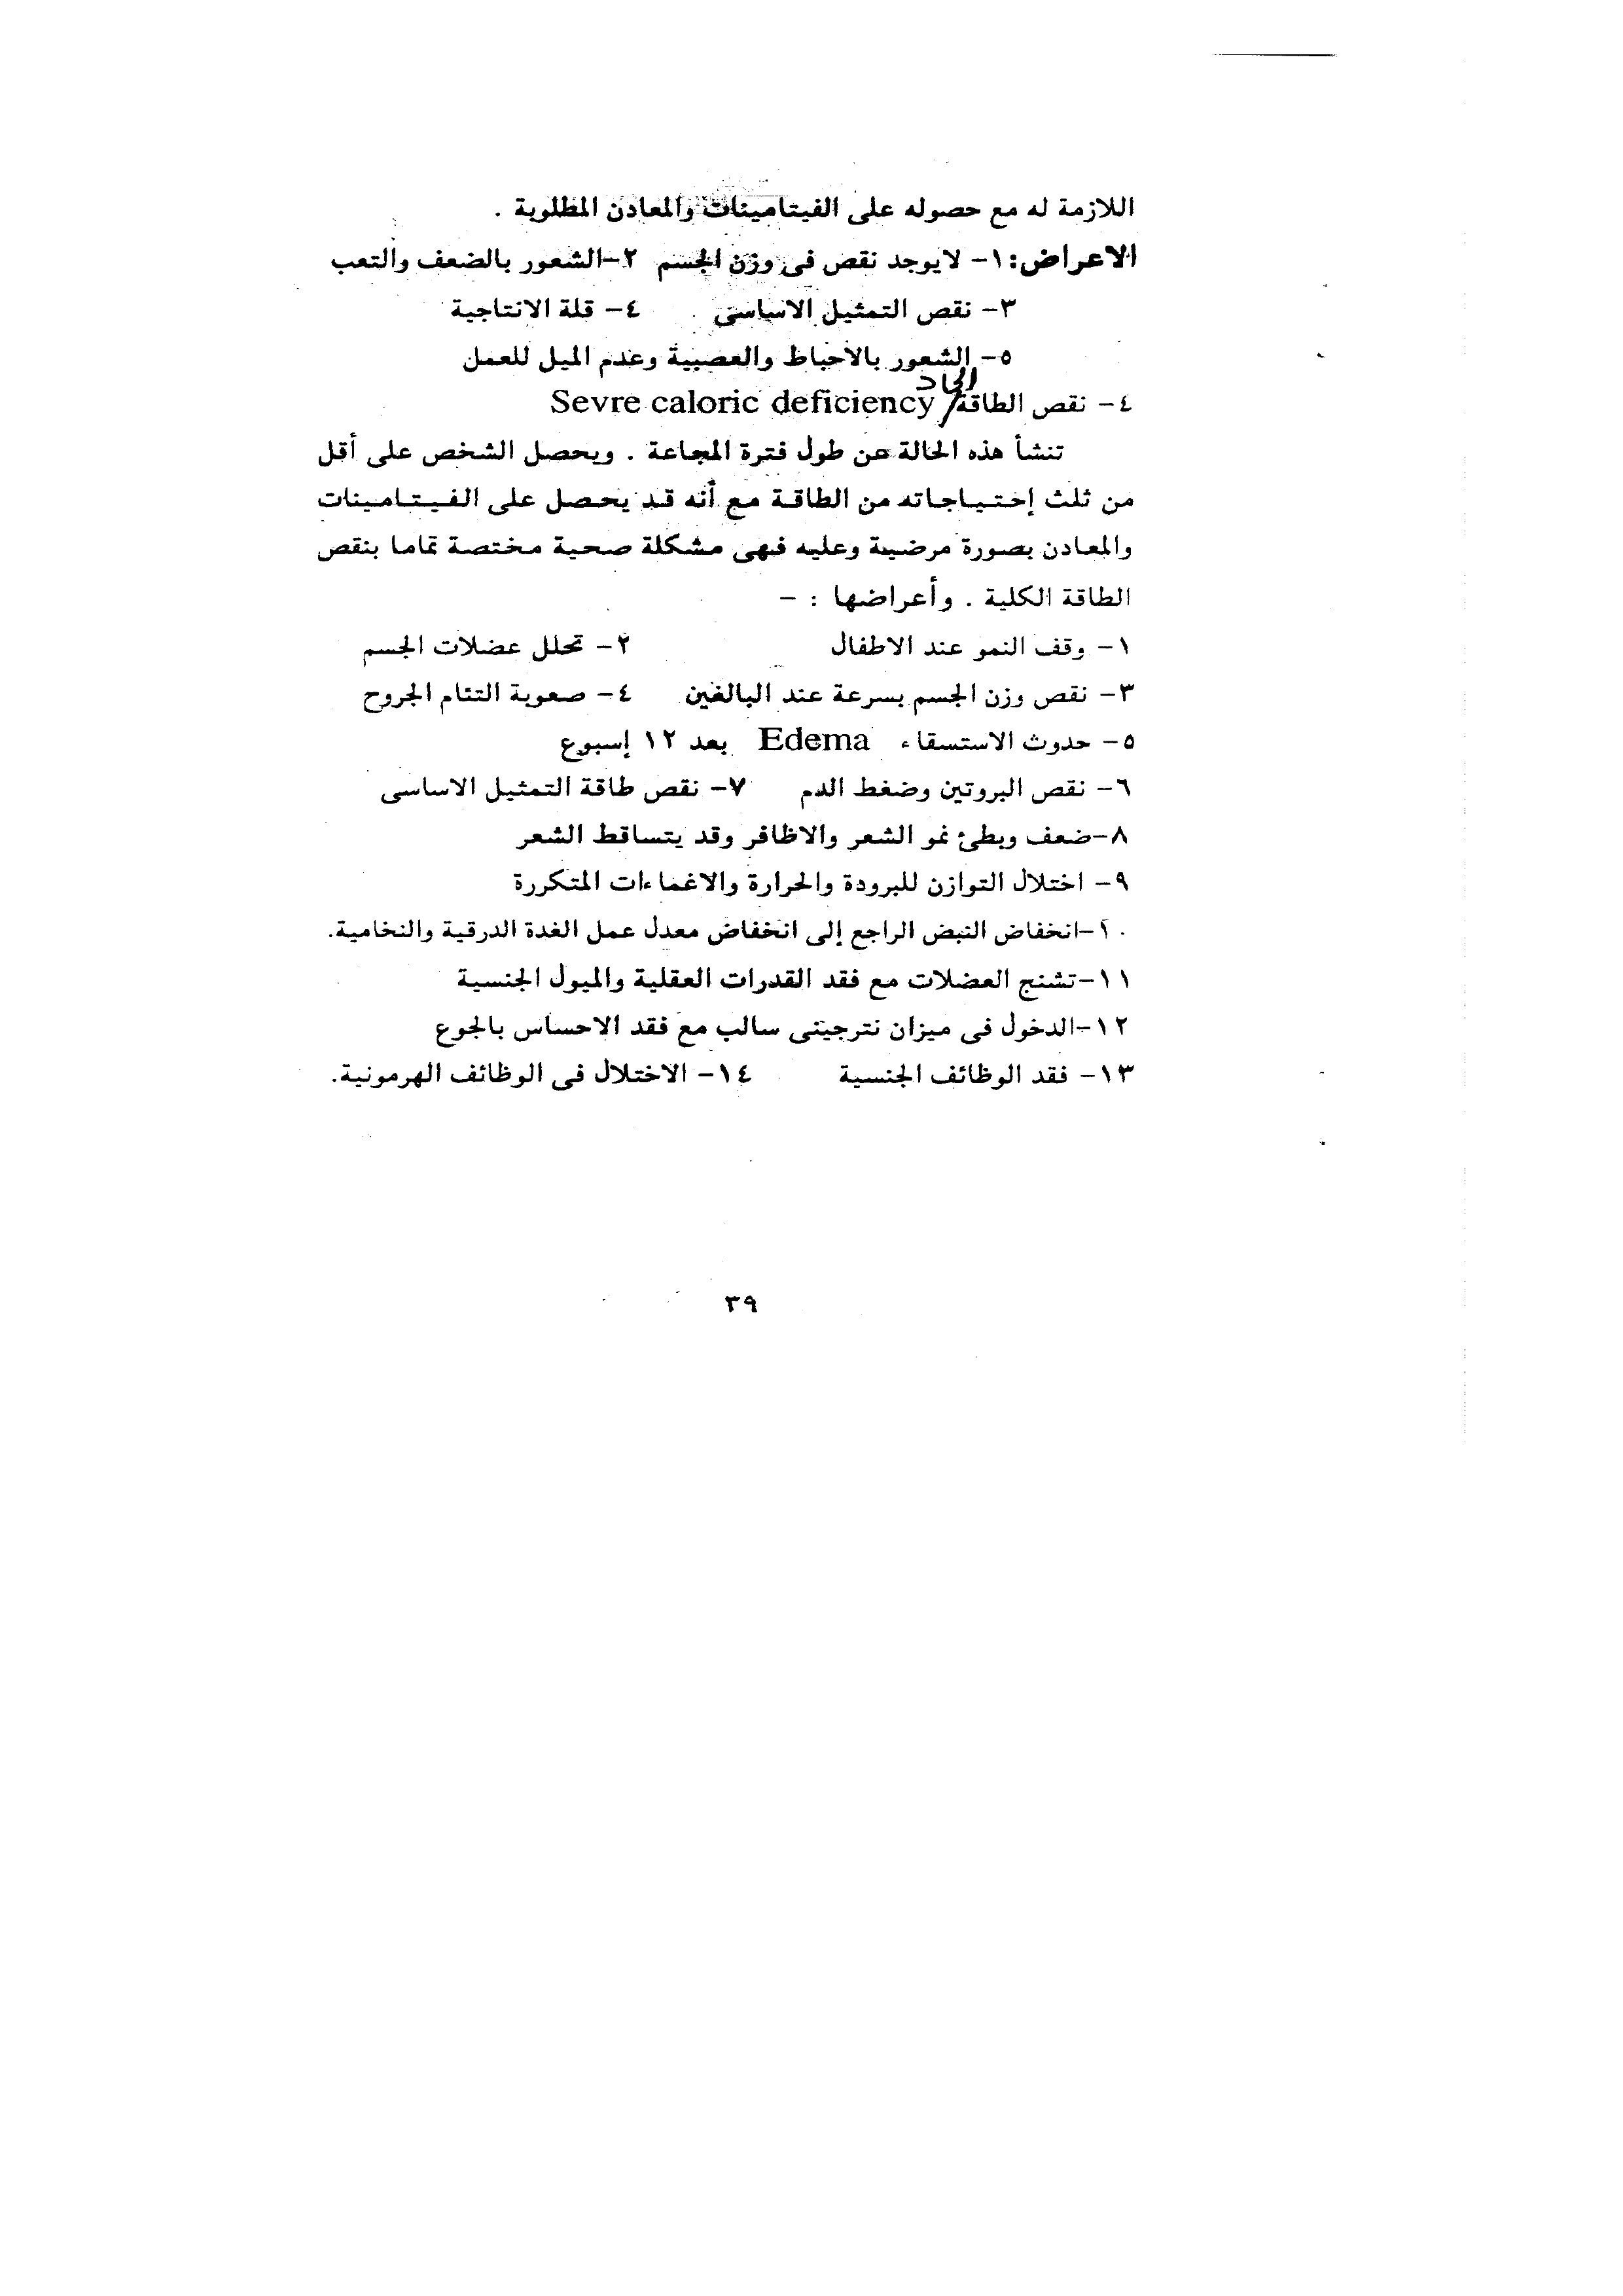 اللازمة له مع حصوله على الفيتامينات والمعادن المطلوبة .
الاعراض: ١- لايوجد نقص فى وزن الجسم ٢-الشعور بالضعف والتعب
٣- نقص التمثيل الاساسى ٤- قلة الانتاجية
٥- الشعور بالاحباط والعصبية وعدم الميل للعمل
٤- نقص الطاقة/ الحاد Sevre caloric deficiency
تنشأ هذه الحالة عن طول فترة المجاعة . ويحصل الشخص على أقل
من ثلث إحتياجاته من الطاقة مع أنه قد يحصل على الفيتامينات
والمعادن بصورة مرضية وعليه فهى مشكلة صحية مختصة تماما بنقص
الطاقة الكلية . وأعراضها : -
١- وقف النمو عند الاطفال ٢- تحلل عضلات الجسم
٣- نقص وزن الجسم بسرعة عند البالغين ٤- صعوبة التئام الجروح
٥- حدوث الاستسقاء Edema بعد ١٢ إسبوع
٦- نقص البروتين وضغط الدم ٧- نقص طاقة التمثيل الاساسى
٨-ضعف وبطئ نمو الشعر والاظافر وقد يتساقط الشعر
٩- اختلال التوازن للبرودة والحرارة والاغماءات المتكررة
١٠-انخفاض النبض الراجع إلى انخفاض معدل عمل الغدة الدرقية والنخامية.
١١-تشنج العضلات مع فقد القدرات العقلية والميول الجنسية
١٢-الدخول فى ميزان نترجينى سالب مع فقد الاحساس بالجوع
١٣- فقد الوظائف الجنسية ١٤- الاختلال فى الوظائف الهرمونية.
٣٩